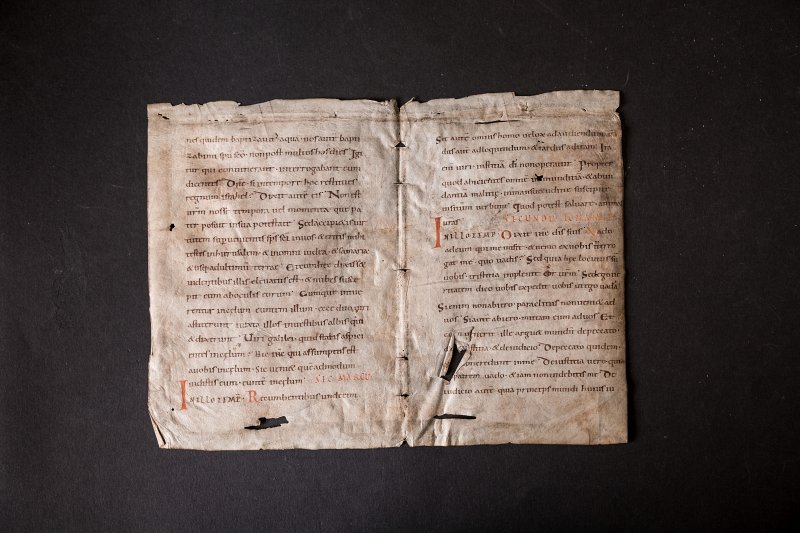 nes quidem baptizauit aqua. uos aut bapti
zabimi spu sco. non post multos hos dies. Igi
tur qui conuenerant. interrogabant eum
dicentes. Dne si intempore hoc restitues
regnum israhel. Dixit aut eis. Non est
urm nosse tempora uel momenta que pa
ter posuit insua potestate. Sed accipietis uir
tutem superuenientis sps sci inuos. & eritis mihi
testes inhierusalem. & inomni iudea. & samaria
& usq; adultimum terrae. Et cum hec dixisset
uidentibus illis eleuatus est. & nubes susce
pit eum aboculis eorum. Cumque intue
rentur incelum euntem illum. ecce duo uiri
astiterunt iuxta illos inuestibus albis. qui
& dixerunt. Uiri galilei quid statis aspici
entes incelum. Hic ihc qui assumptus est
auobis incelum. sic ueniet quemadmodum
uidistis eum euntem incelum. SEC MARCU
Inillo tempr. Recumbentibus undecim
Sit aut omnis homo uelox adaudiendum
dus aut adloquendum. & tardus adiram. Ira
enim uiri iustitia di nonoperatur. Propter
quod abicientes omnem inmunditia. & abun
dantia malitiae. inmansuetudine suscipite
insitum uerbum. Quod potest saluare animas
uras. SECUNDU IOHANNEM
Inillo temp. Dixit ihc dis suis. Uado
adeum quime misit. & nemo exuobis interro
gat me. quo uadis. Sed quia hec locutus su
uobis. tristitia impleuit cor urm. Sed ego ue
ritatem dico uobis. expedit uobis ut ego uada.
Si enim nonabiero. paraclitus nonueniet ad
uos. Si aut abiero. mittam eum aduos. Et
cum uenerit ille arguet mundu depeccato.
& deiustitia. & deiudicio. Depeccato quidem
noncrediderunt inme. Deiustitia uero. quia
adpatrem uado. & iam nonuidebitis me. De
iudicio aut. quia princeps mundi huius iu